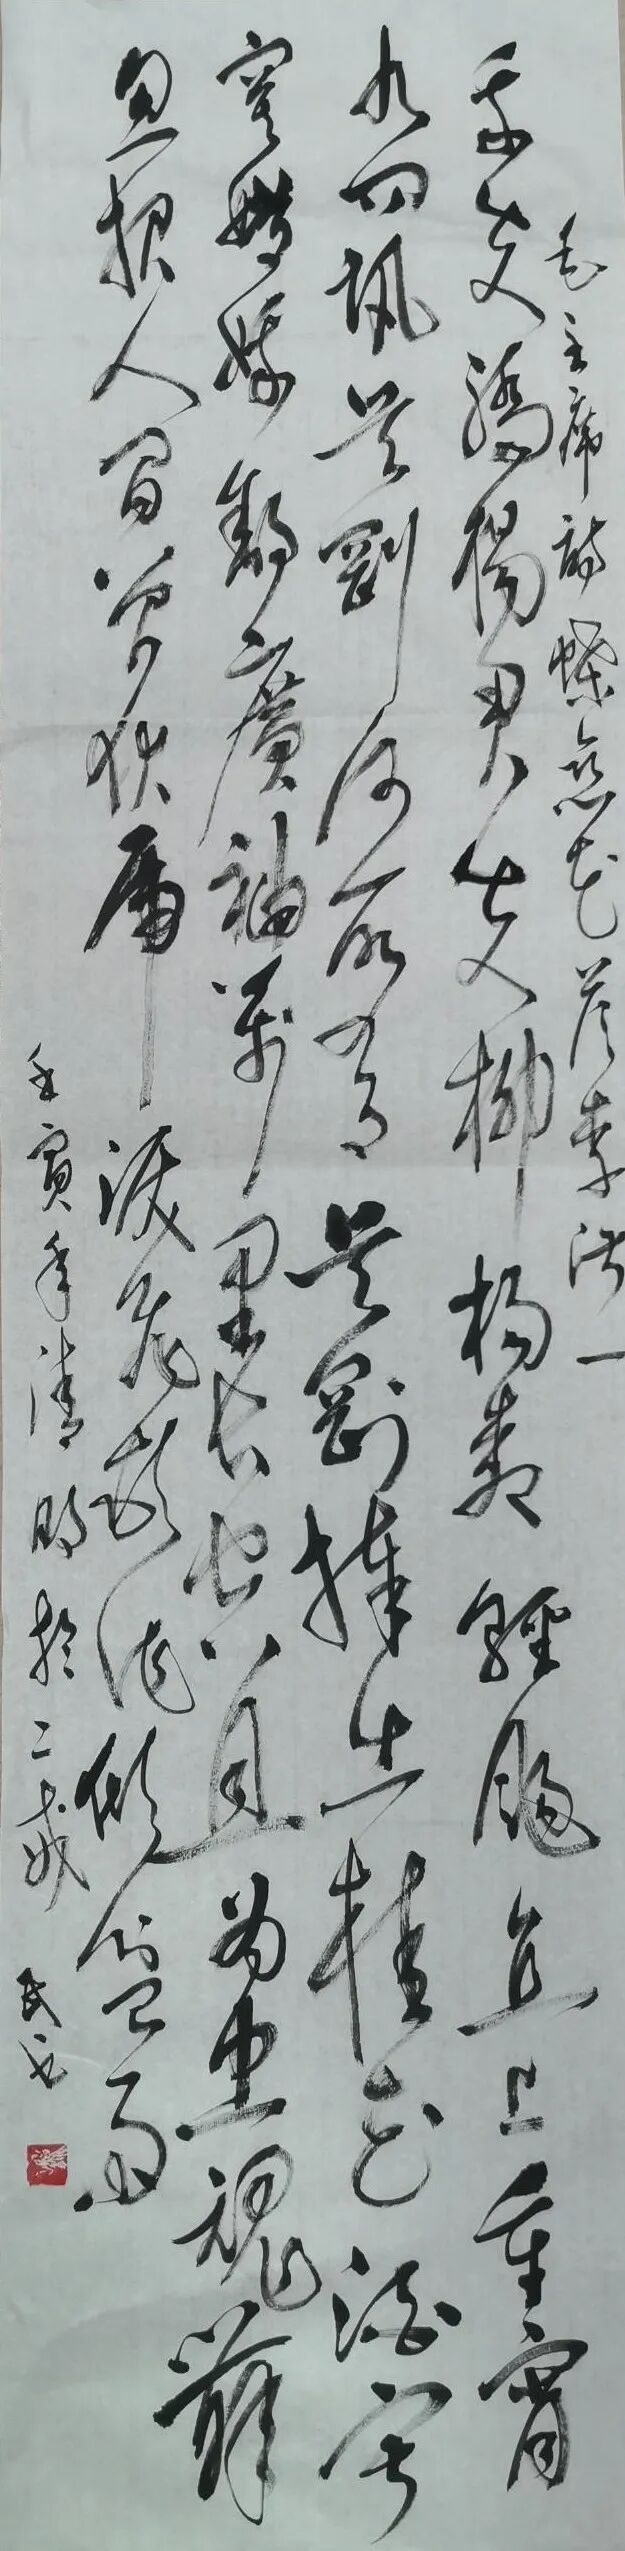 毛主席詩蝶恋花答李淑一
我失驕楊君失柳楊柳輕颺直上重霄
九问訊吴剛何所有吴剛捧出桂花酒寂
寞嫦娥舒廣袖萬里長空且為忠魂舞
忽报人间曾伏虎淚飛頓作傾盆雨
壬寅年清明於